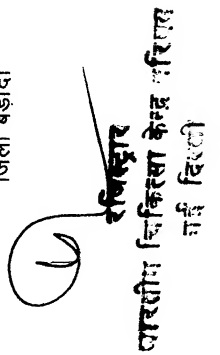 जिला बड़ोदा
रजिस्ट्रार
भारतीय चिकित्सा केन्द्र परिषद
नई दिल्ली